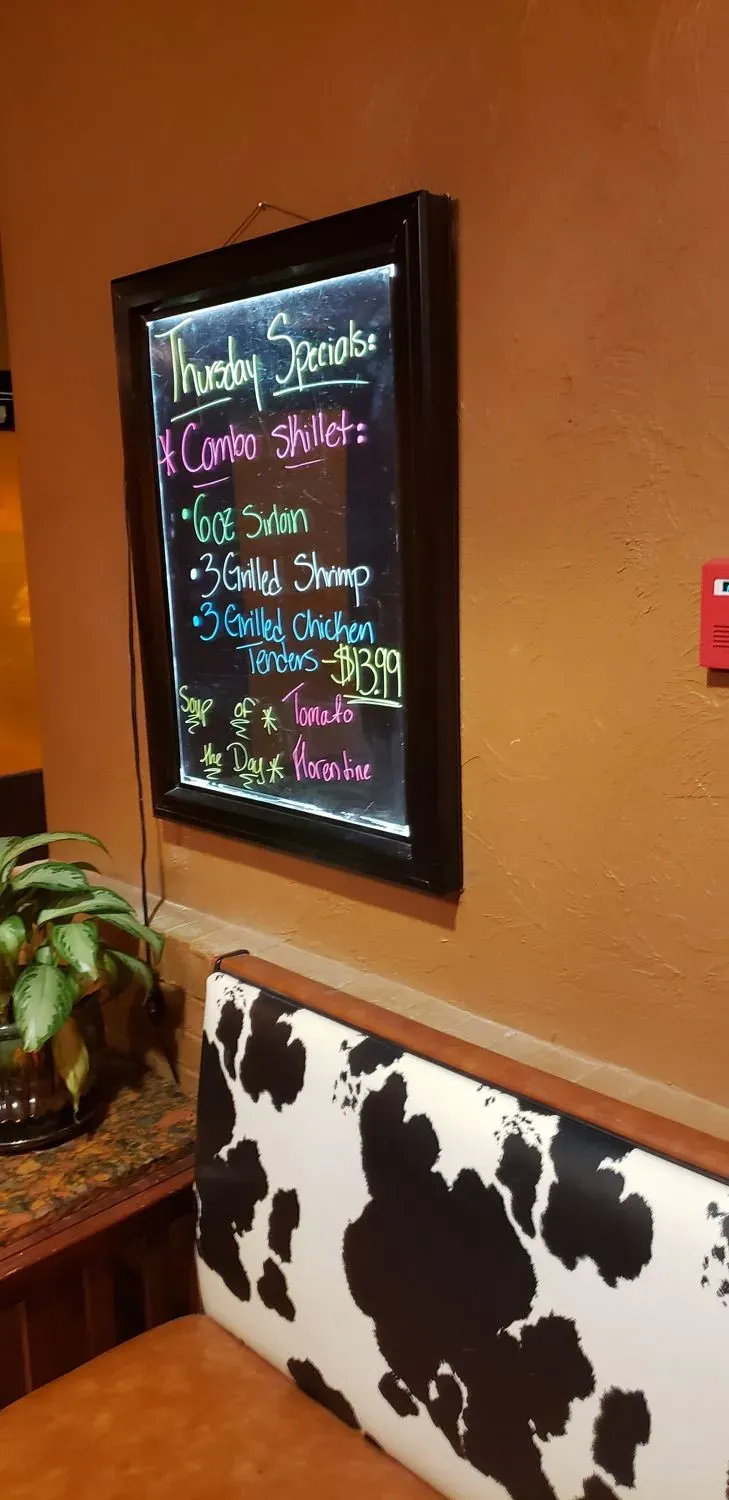 Thursday Specials:
* Combo Skillet:
• 6oz Sirloin
• 3 Grilled Shrimp
• 3 Grilled Chicken
Tenders - $13.99
Soup of * Tomato
the Day * Florentine